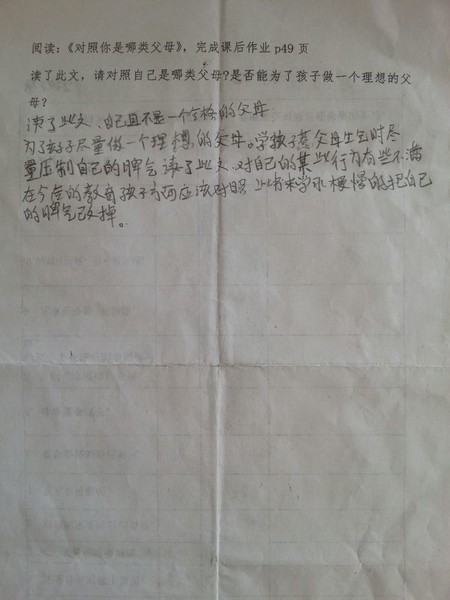 阅读：《对照你是哪类父母》，完成课后作业p49页
读了此文，请对照自己是哪类父母?是否能为了孩子做一个理想的父
母?
读了此文、自己且不是一个合格的父母
为了孩子尽量做一个理想的父母。学孩子惹父母生气时尽
量压制自己的脾气 读了此文、对自己的某些行为有些不满
在今后的教育孩子方面应该对照 此书来学习慢慢的把自己
的脾气改掉。